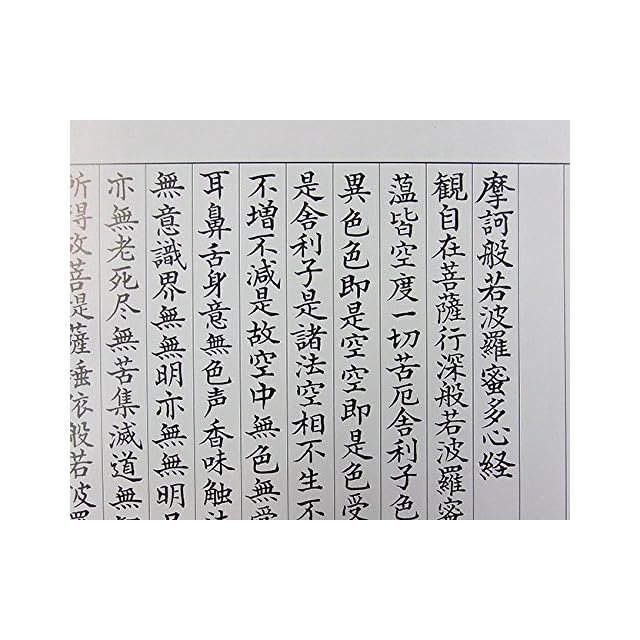 摩訶般若波羅蜜多心経
観自在菩薩行深般若波羅蜜
薀皆空度一切苦厄舎利子色
異色色即是空空即是色受
是舎利子是諸法空相不生不
不増不減是故空中無色無受
耳鼻舌身意無色声香味触
無意識界無無明亦無無明
亦無老死尽無苦集滅道無
所得故菩提薩埵依般若波